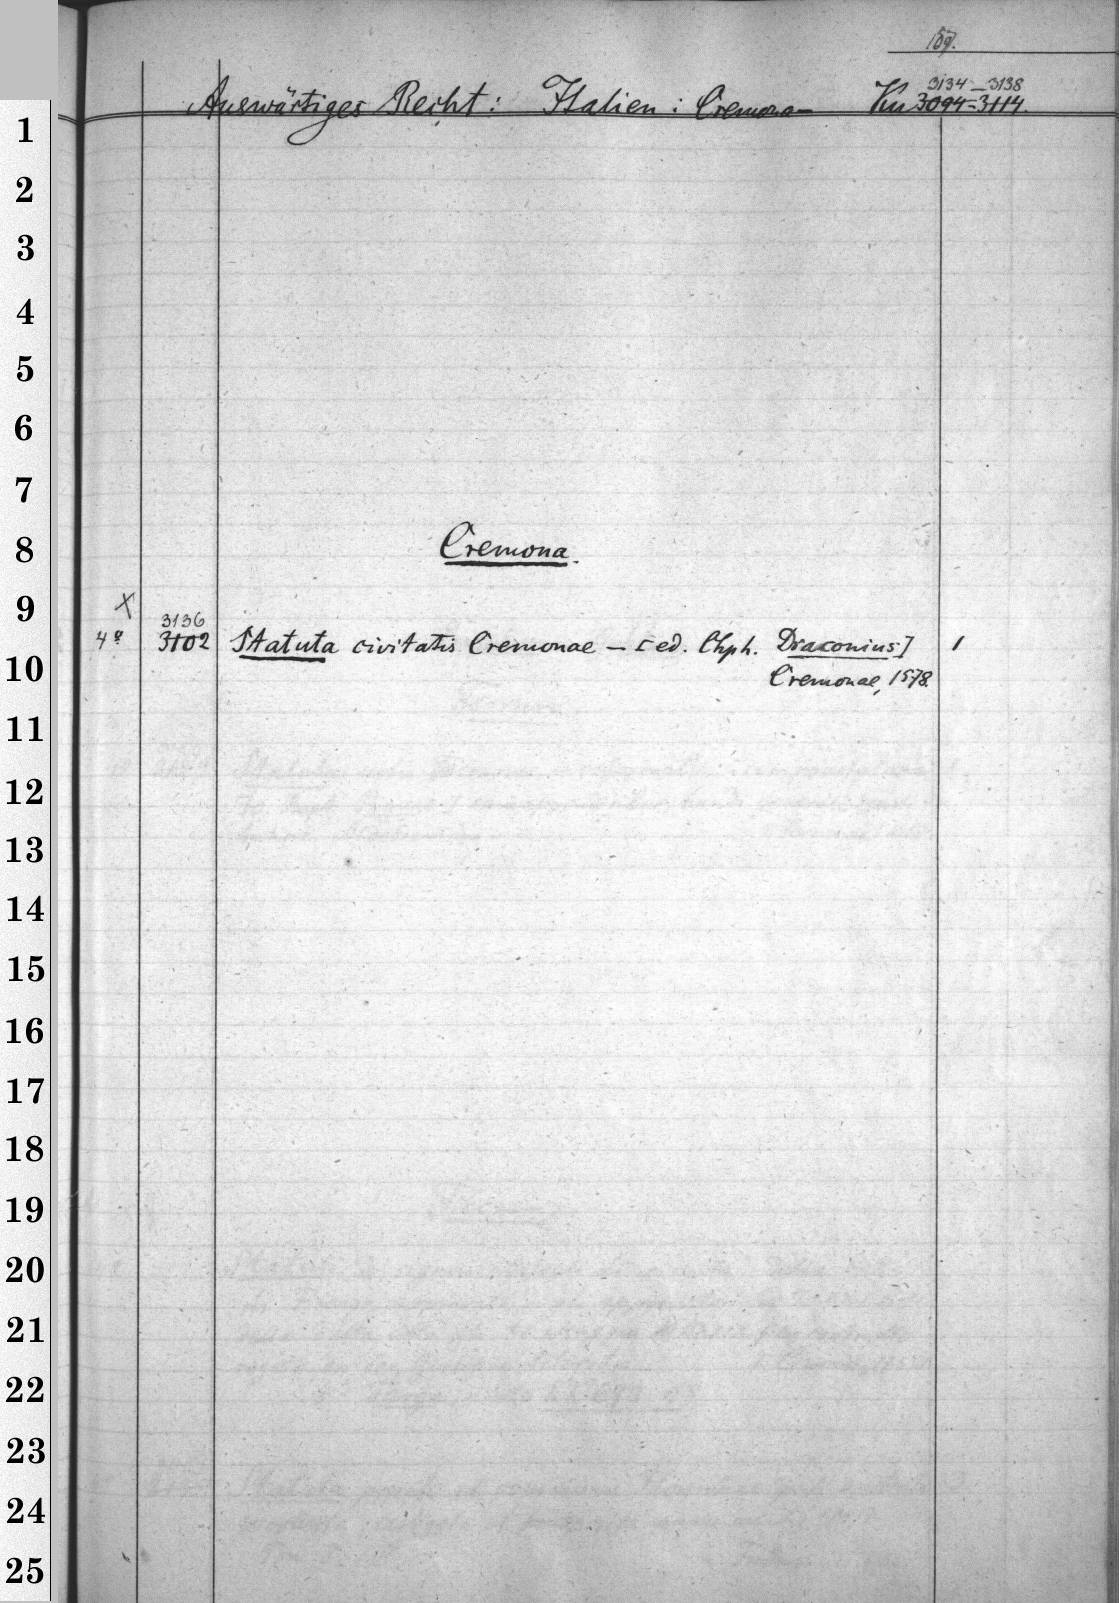 159.
3134 – 3138
Auswärtiges Recht: Italien: Cremona 3094–3114.
1
2
3
4
5
6
7
8
Cremona.
9
X
3136
4° 3102 Statuta civitatis Cremonae – [ed. Chph. Draconius] 1
10
Cremonae, 1578.
11
12
13
14
15
16
17
18
19
20
21
22
23
24
25